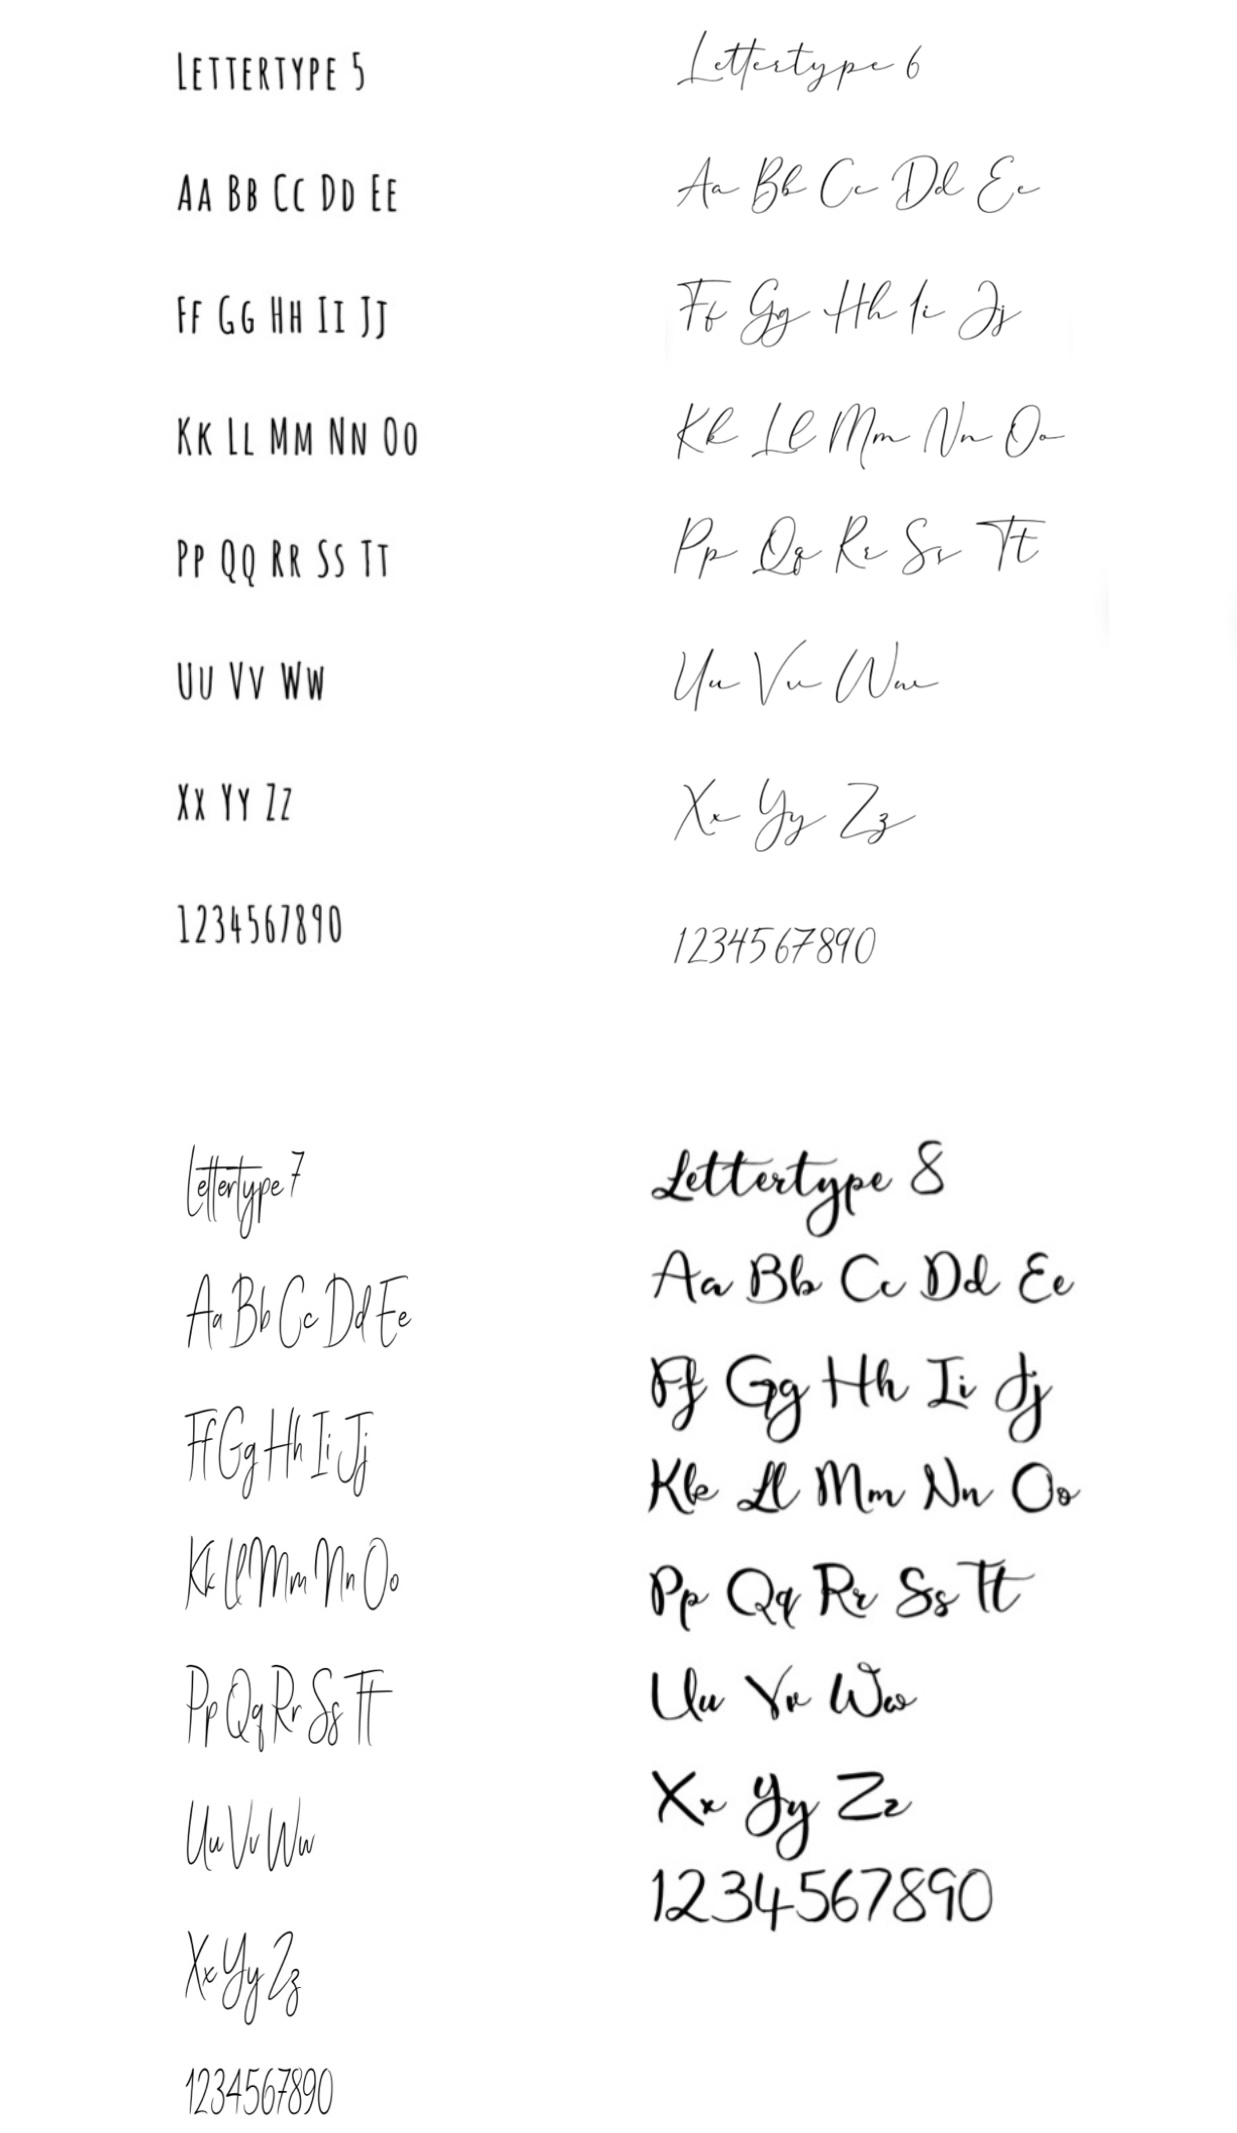 Lettertype 5
Aa Bb Cc Dd Ee
Ff Gg Hh Ii Jj
Kk Ll Mm Nn Oo
Pp Qq Rr Ss Tt
Uu Vv Ww
Xx Yy Zz
1234567890
Lettertype 6
Aa Bb Cc Dd Ee
Ff Gg Hh Ii Jj
Kk Ll Mm Nn Oo
Pp Qq Rr Ss Tt
Uu Vv Ww
Xx Yy Zz
1234567890
Lettertype 7
Aa Bb Cc Dd Ee
Ff Gg Hh Ii Jj
Kk Ll Mm Nn Oo
Pp Qq Rr Ss Tt
Uu Vv Ww
Xx Yy Zz
1234567890
Lettertype 8
Aa Bb Cc Dd Ee
Ff Gg Hh Ii Jj
Kk Ll Mm Nn Oo
Pp Qq Rr Ss Tt
Uu Vv Ww
Xx Yy Zz
1234567890